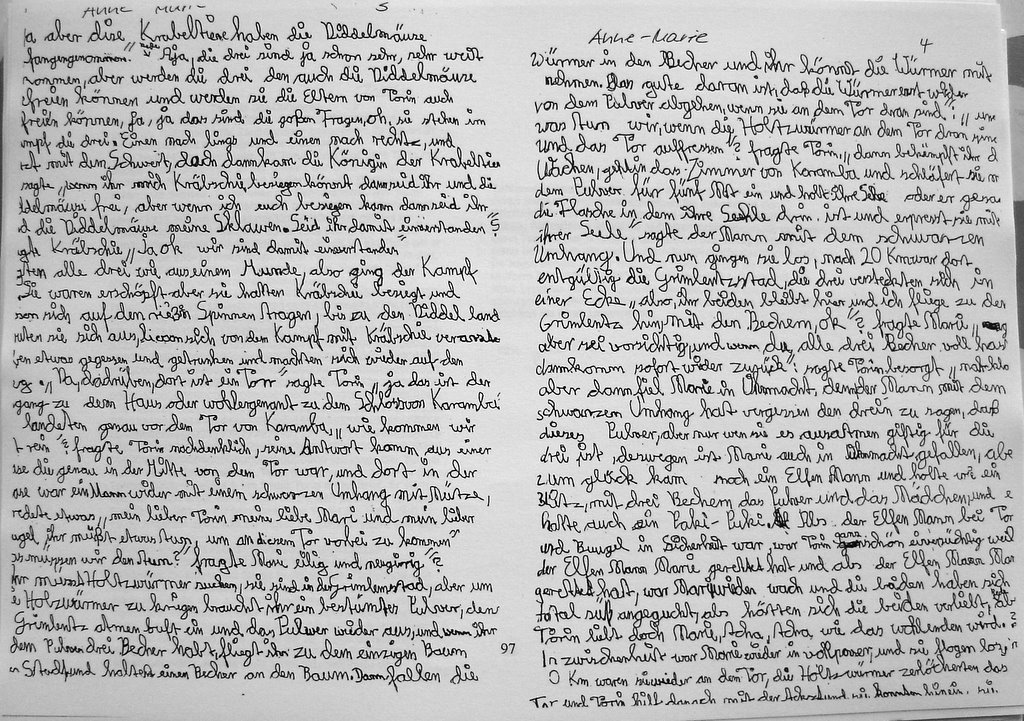 Anne Marie 3
ja aber dise Krabeltiene haben die Diddelmäuse
fangengenommen." "Aja, die drei sind ja schon sehr, sehr weit
kommen, aber werden die drei den auch die Diddelmäuse
efreien können und werden sie die Eltern von Torin auch
freien können, ja, ja das sind die goßen Fragen, oh, sie stehen im
ampf die drei. Einen nach lings und einen nach rechts, und
mit dem Schwert, doch dann kam die Königin der Krabeltiere
sagte "wenn ihr mich Kräbschie, besiegen könnt dann seid ihr und die
ddelmäuse frei, aber wenn ich euch besiegen kann dann seid ihr
d die Diddelmäuse meine Sklauren. Seid ihr damit einverstanden"?
agte Kräbschie "Ja ok wir sind damit einverstanden"
gten alle drei wie aus einem Munde, also ging der Kampf
Sie waren erschöpft aber sie hatten Kräbschie besiegt und
sen sich auf den Spinnen tragen, bis zu den Diddel land
ruhten sie sich aus, von dem Kampf mit Kräbschie
ben etwas gegessen und getrunken und machten sich wider auf den
eg. "Da, dadrüben, dort ist ein Torr" sagte Torin "ja das ist der
gang zu dem Haus oder wohlergenant zu dem Schloss von Karamba"
landeten genau vor dem Tor von Karamba "wie kommen wir
t rein"? fragte Torin nachdenklich, seine Antwort kamm aus einer
se die genau in der Mitte von dem Tor war, und dort in der
ase war ein Mann wider mit einem schwarzen Umhang mit Mütze,
redete etwas "mein lieber Torin meine liebe Mari und mein lieber
ugel, ihr müßt etwas tun, um an diesem Tor vorbei zu kommen"
as müssen wir den tun?" fragte Marie eilig und neugirig"?
ihr musst Holtzwürmer suchen, sie sind in der grimlenzstad, aber um
e Holzwürmer zu krigen braucht ihr ein bestimtes Pulwer, den
Grimlentz atmen luft ein und das Pulwer wider aus, und wenn ihr
dem Pulwer drei Becher habt, fliegt ihr zu dem einzigen Baum
n Stadt und haltet einen Becher an den Baum. Dann fallen die
97
Anne-Marie 4
Würmer in den Becher und ihr könnt die Würmer mit
nehmen. Das gute daran ist, daß die Würmer erst wider
von dem Pulwer abgehen, wenn sie an dem Tor dran sind." "und
was tun wir, wenn die Holtzwürmer an dem Tor dran sind
und das Tor auffressen"? fragte Torin "dann bekämpft ihr d
Wachen, geht in das Zimmer von Karamba und schläfert sie m
dem Pulwer für fünf Mit ein und holt ihre Sele oder er gesa
die Flasche in dem ihre Seehle drin ist und erpresst sie mit
ihrer Seele" sagte der Mann mit dem schwarzen
Umhang. Und nun gingen sie los, nach 20 Km war dort
entgültig die Grimlentzstad, die drei versteckten sich in
einer Ecke "also, ihr beiden bleibt hier und ich fliege zu den
Grimlentz hin, mit den Bechern, ok"? fragte Mari "
aber sei vorsichtig, und wenn du, alle drei Becher voll hast
dann komm sofort wider zurück": sagte Torin besorgt
aber dann fiel Marie in Ohnmacht, denn der Mann mit dem
schwarzem Umhang hat vergessen den drein zu sagen, daß
dieses Pulwer, aber nur wen sie es ausatmen giftig für die
drei ist, deswegen ist Marie auch in Ohnmacht, gefallen, abe
zum glück kam noch ein Elfen Mann und holte wie ein
Blitz, mit drei Bechern das Pulwer und das Mädchen, und e
holte auch sein Paki-Puki. Als der Elfen Mann bei Tor
und Buugel in Sicherheit war, war Torin ganz schön eiversüchtig weil
der Elfen Mann Marie gerettet hat und als der Elfen Mann Mar
gerettet hatt, war Mari wider wach und die beiden haben sich
total süß angeguckt, als hätten sich die beiden verliebt, ab
Torin liebt doch Marie, Acha, Acha, wie das wohl enden wird.?
In zwischenheit war Marie wider in vollpower, und sie flogen los, n
0 Km waren sie wieder an dem Tor, die Holtzwürmer zerlöcherten das
Tor und Torin hilft danach mit der Achst und sie kommen hinein. sie